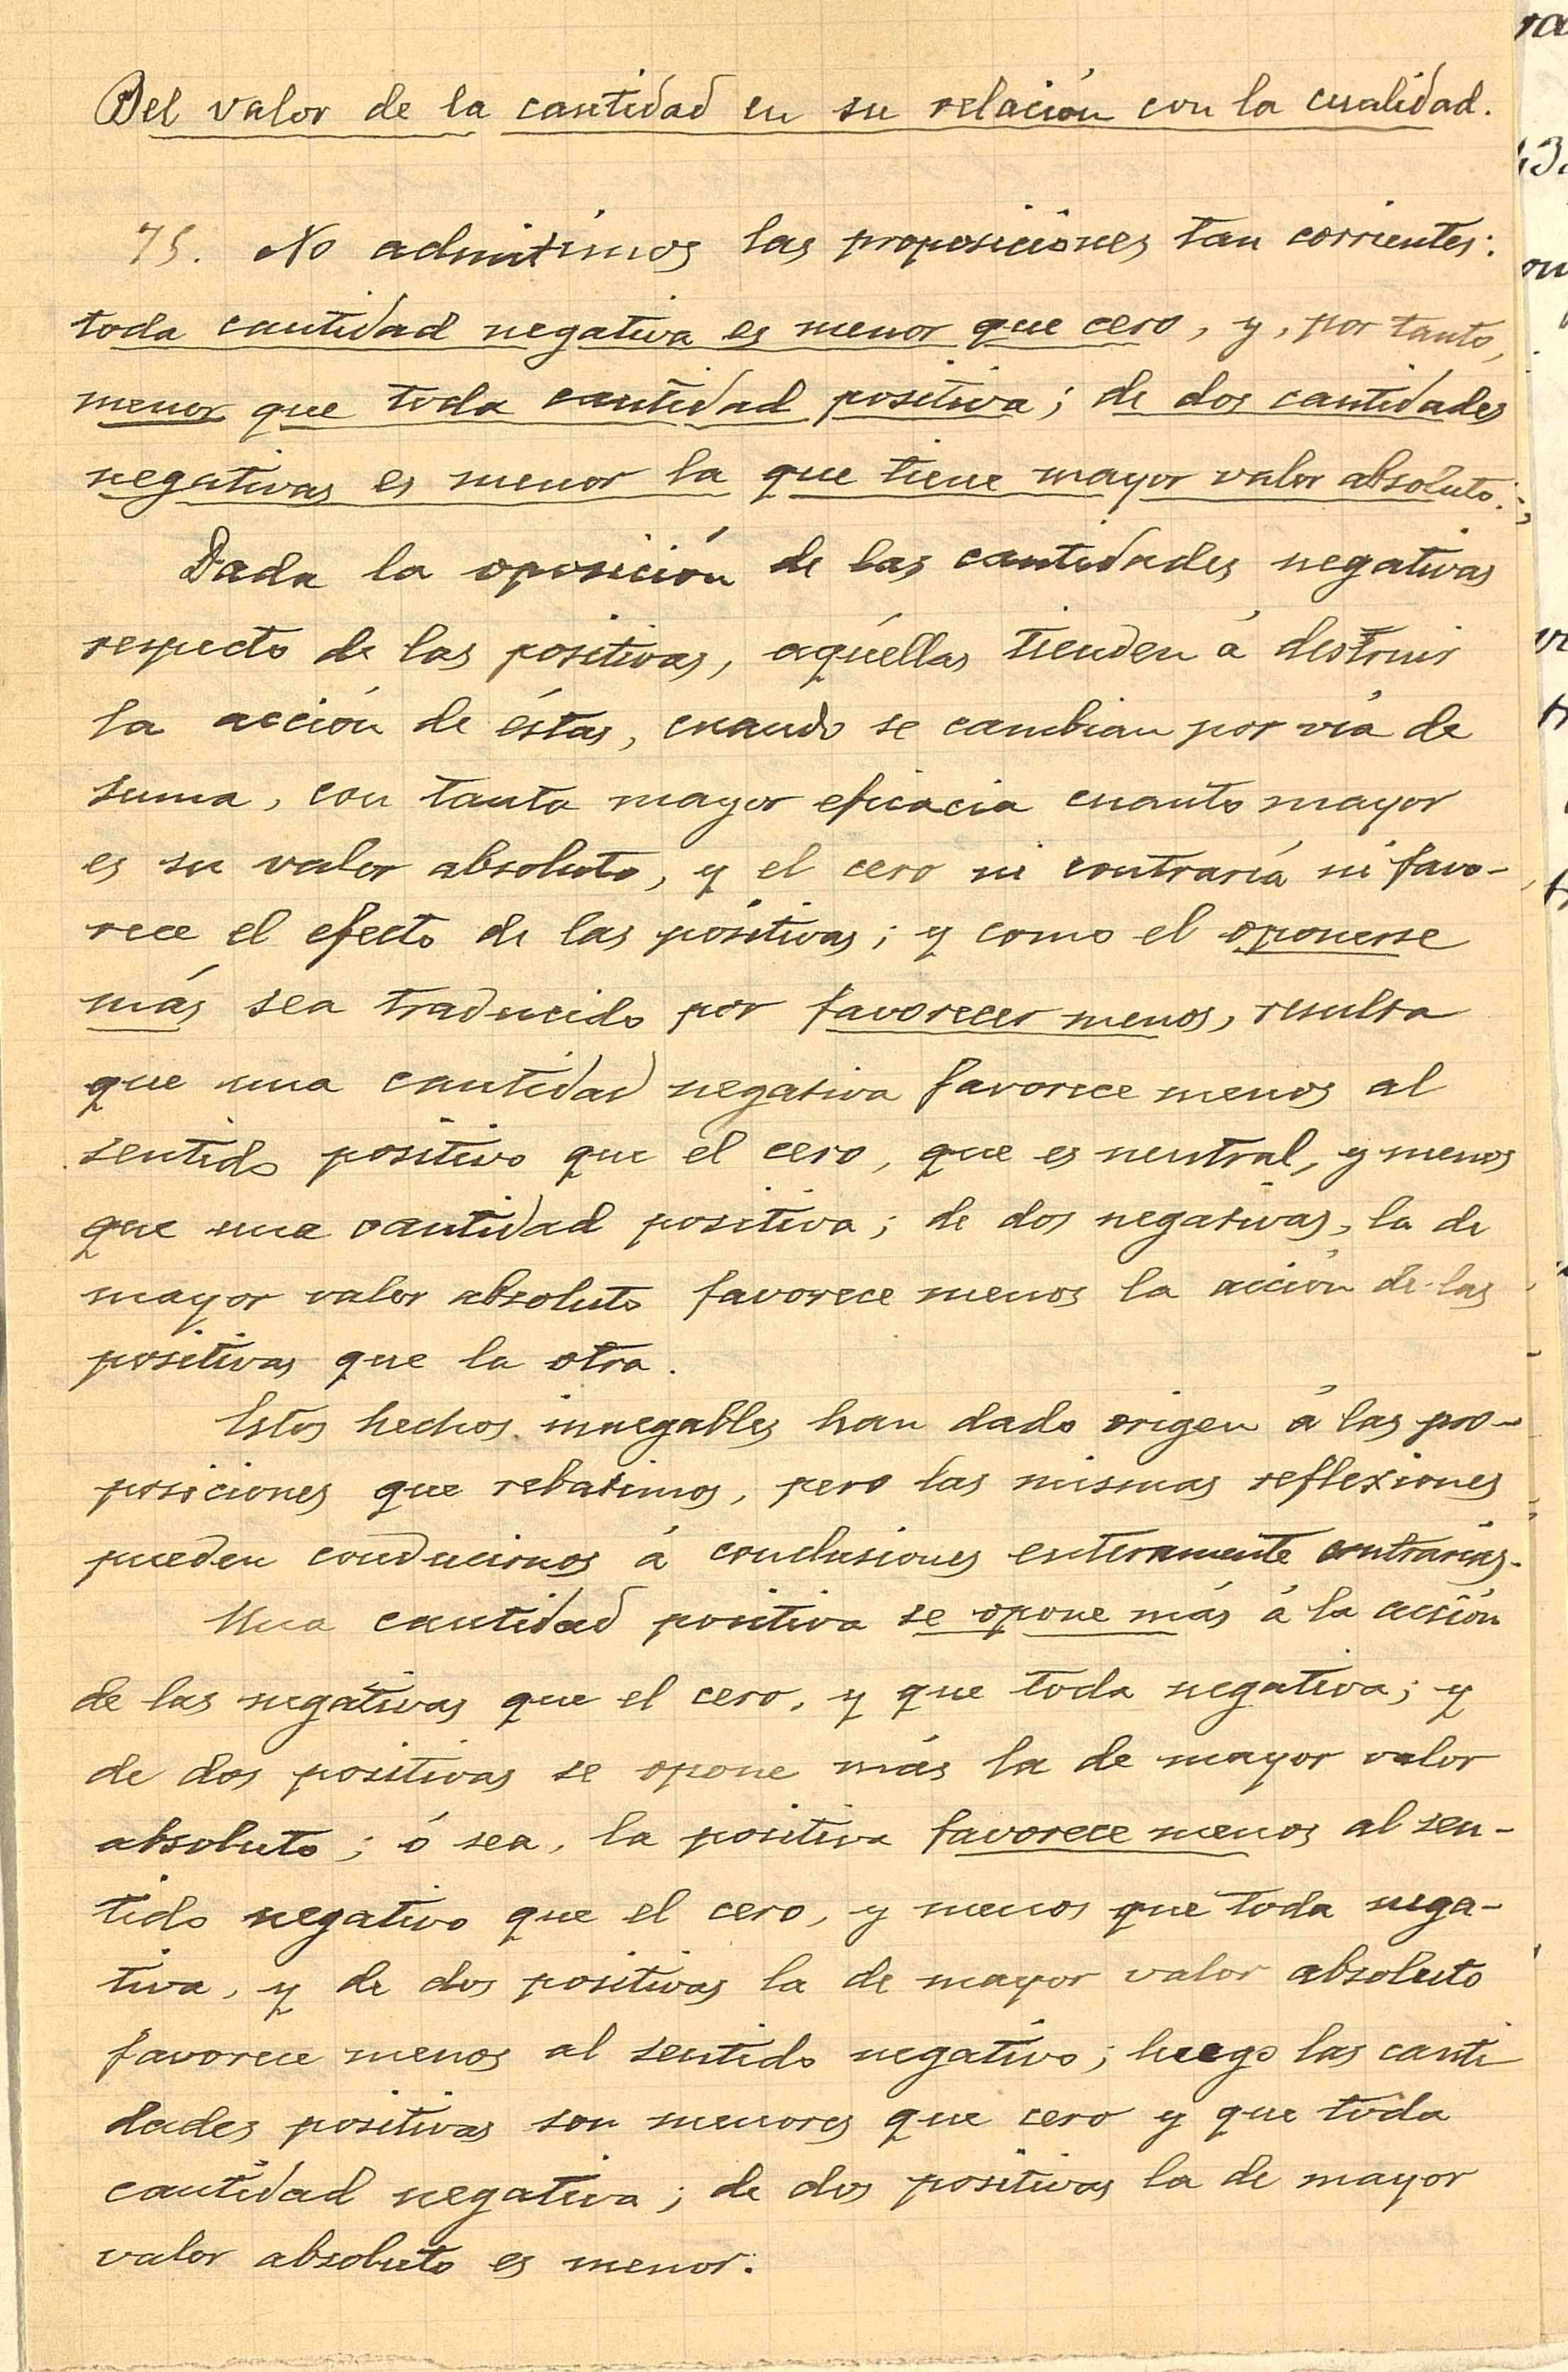 Del valor de la cantidad en su relación con la cualidad.
75. No admitimos las proposiciones tan corrientes:
toda cantidad negativa es menor que cero, y, por tanto,
menor que toda cantidad positiva; de dos cantidades
negativas es menor la que tiene mayor valor absoluto.
Dada la oposición de las cantidades negativas
respecto de las positivas, aquéllas tienden á destruir
la acción de éstas, cuando se cambian por vía de
suma, con tanta mayor eficacia cuanto mayor
es su valor absoluto, y el cero ni contraría ni favo-
rece el efecto de las positivas; y como el oponerse
más sea traducido por favorecer menos, resulta
que una cantidad negativa favorece menos al
sentido positivo que el cero, que es neutral, y menos
que una cantidad positiva; de dos negativas, la de
mayor valor absoluto favorece menos la acción de las
positivas que la otra.
Estos hechos innegables han dado origen á las pro-
posiciones que rebatimos, pero las mismas reflexiones
pueden conducirnos á conclusiones enteramente contrarias.
Una cantidad positiva se opone más á la acción
de las negativas que el cero, y que toda negativa; y
de dos positivas se opone más la de mayor valor
absoluto; ó sea, la positiva favorece menos al sen-
tido negativo que el cero, y menos que toda nega-
tiva, y de dos positivas la de mayor valor absoluto
favorece menos al sentido negativo; luego las canti
dades positivas son menores que cero y que toda
cantidad negativa; de dos positivas la de mayor
valor absoluto es menor.